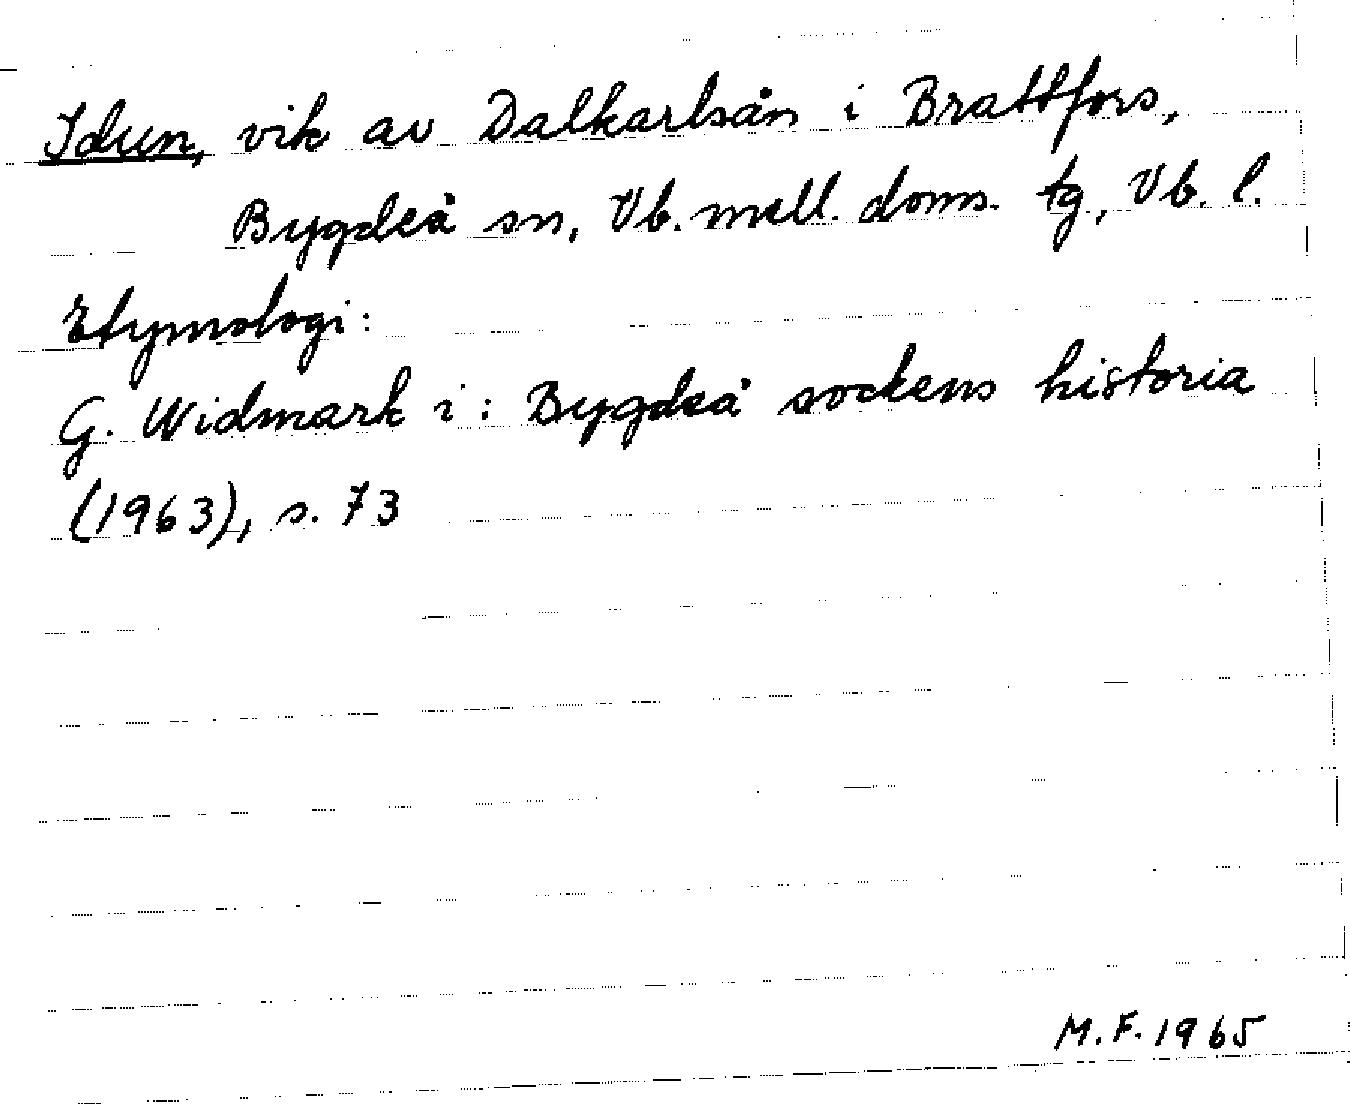 Idun, vik av Dalkarlsån i Brattfors,
Bygdeå sn, Vb. mell. doms. tg, Vb. l.
Etymologi:
G. Widmark i: Bygdeå sockens historia
(1963), s. 73
M.F. 1965